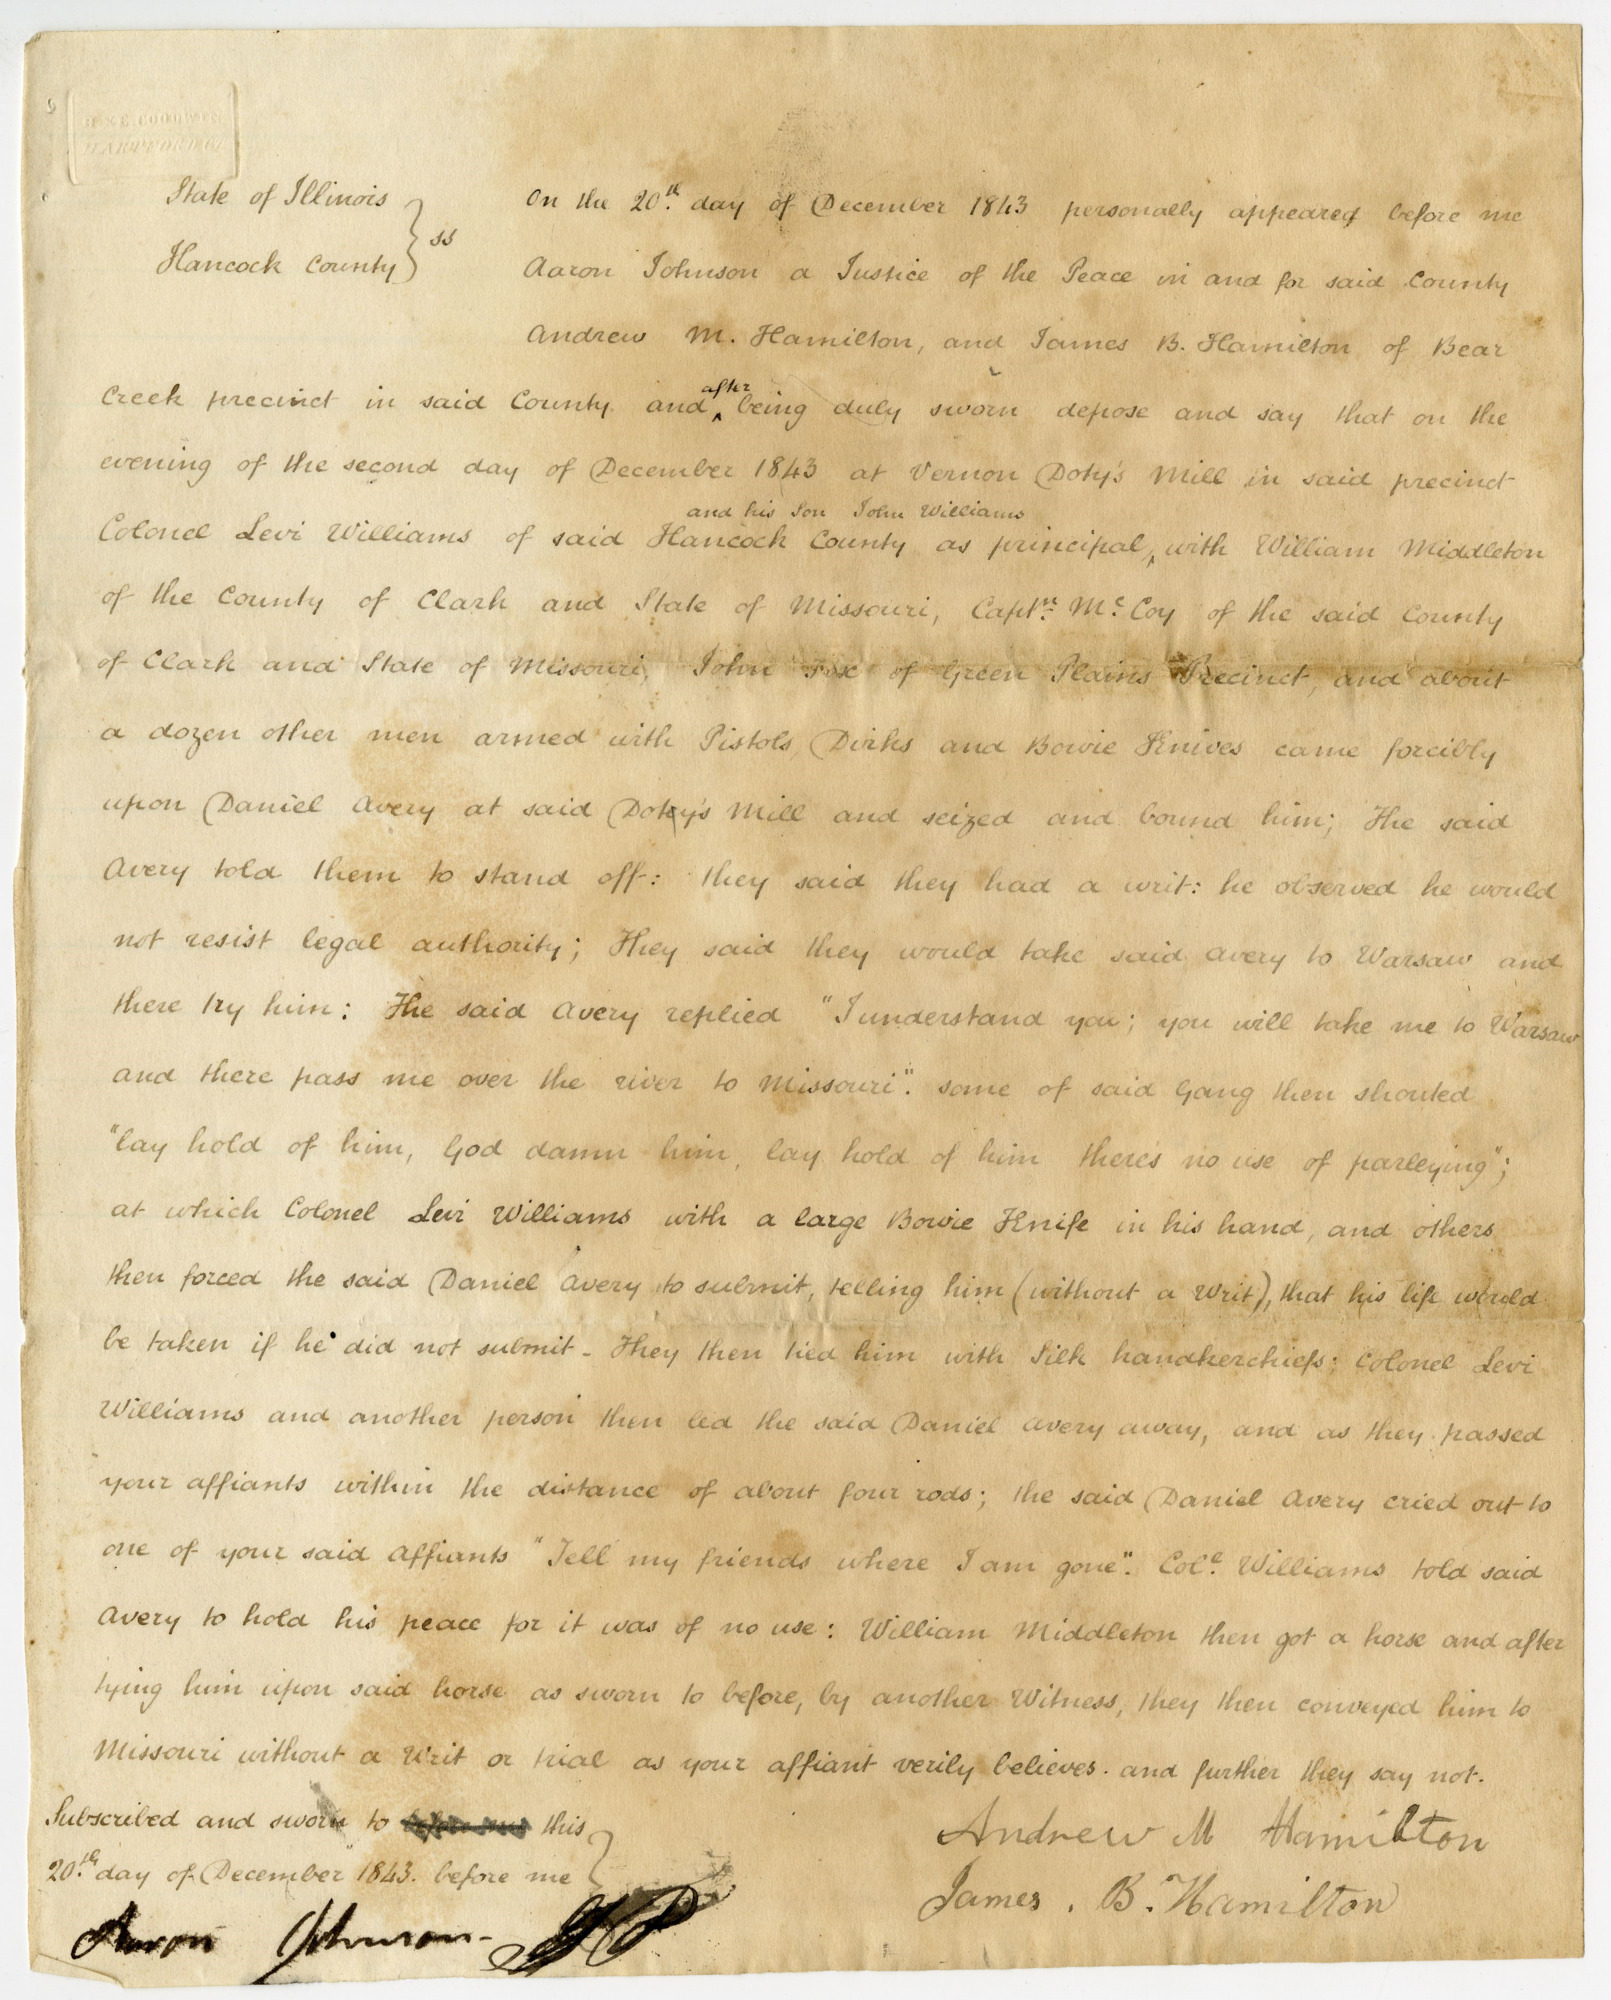 State of Illinois
Hancock County } ss
On the 20th. day of December 1843 personally appeared before me
Aaron Johnson a Justice of the Peace in and for said County
Andrew M. Hamilton, and James B. Hamilton of Bear
Creek precinct in said County and ^after being duly sworn depose and say that on the
evening of the second day of December 1843 at Vernon Doty's Mill in said precinct
and his Son John Williams
Colonel Levi Williams of said Hancock County as principal,^ with William Middleton
of the County of Clark and State of Missouri, Captn. Mc. Coy of the said County
of Clark and State of Missouri, John Fox of Green Plains Precinct, and about
a dozen other men armed with Pistols, Dirks and Bowie Knives came forcibly
upon Daniel Avery at said Doty's Mill and seized and bound him; The said
Avery told them to stand off: they said they had a writ: he observed he would
not resist legal authority; They said they would take said Avery to Warsaw and
there try him: The said Avery replied "I understand you; you will take me to Warsaw
and there pass me over the river to Missouri". some of said Gang then shouted
"lay hold of him, God damn him, lay hold of him theres no use of parleying";
at which Colonel Levi Williams with a large Bowie Knife in his hand, and others
then forced the said Daniel Avery to submit, telling him (without a Writ), that his life would
be taken if he did not submit - They then tied him with Silk handkerchiefs: Colonel Levi
Williams and another person then led the said Daniel Avery away, and as they passed
your affiants within the distance of about four rods; the said Daniel Avery cried out to
one of your said Affiants "Tell my friends where I am gone". Coll. Williams told said
Avery to hold his peace for it was of no use: William Middleton then got a horse and after
tying him upon said horse as sworn to before, by another Witness, they then conveyed him to
Missouri without a Writ or trial as your affiant verily believes. and further they say not.
Subscribed and sworn to this
20th. day of December 1843. before me
Andrew M Hamilton
James . B. Hamilton
Aaron Johnson - J P